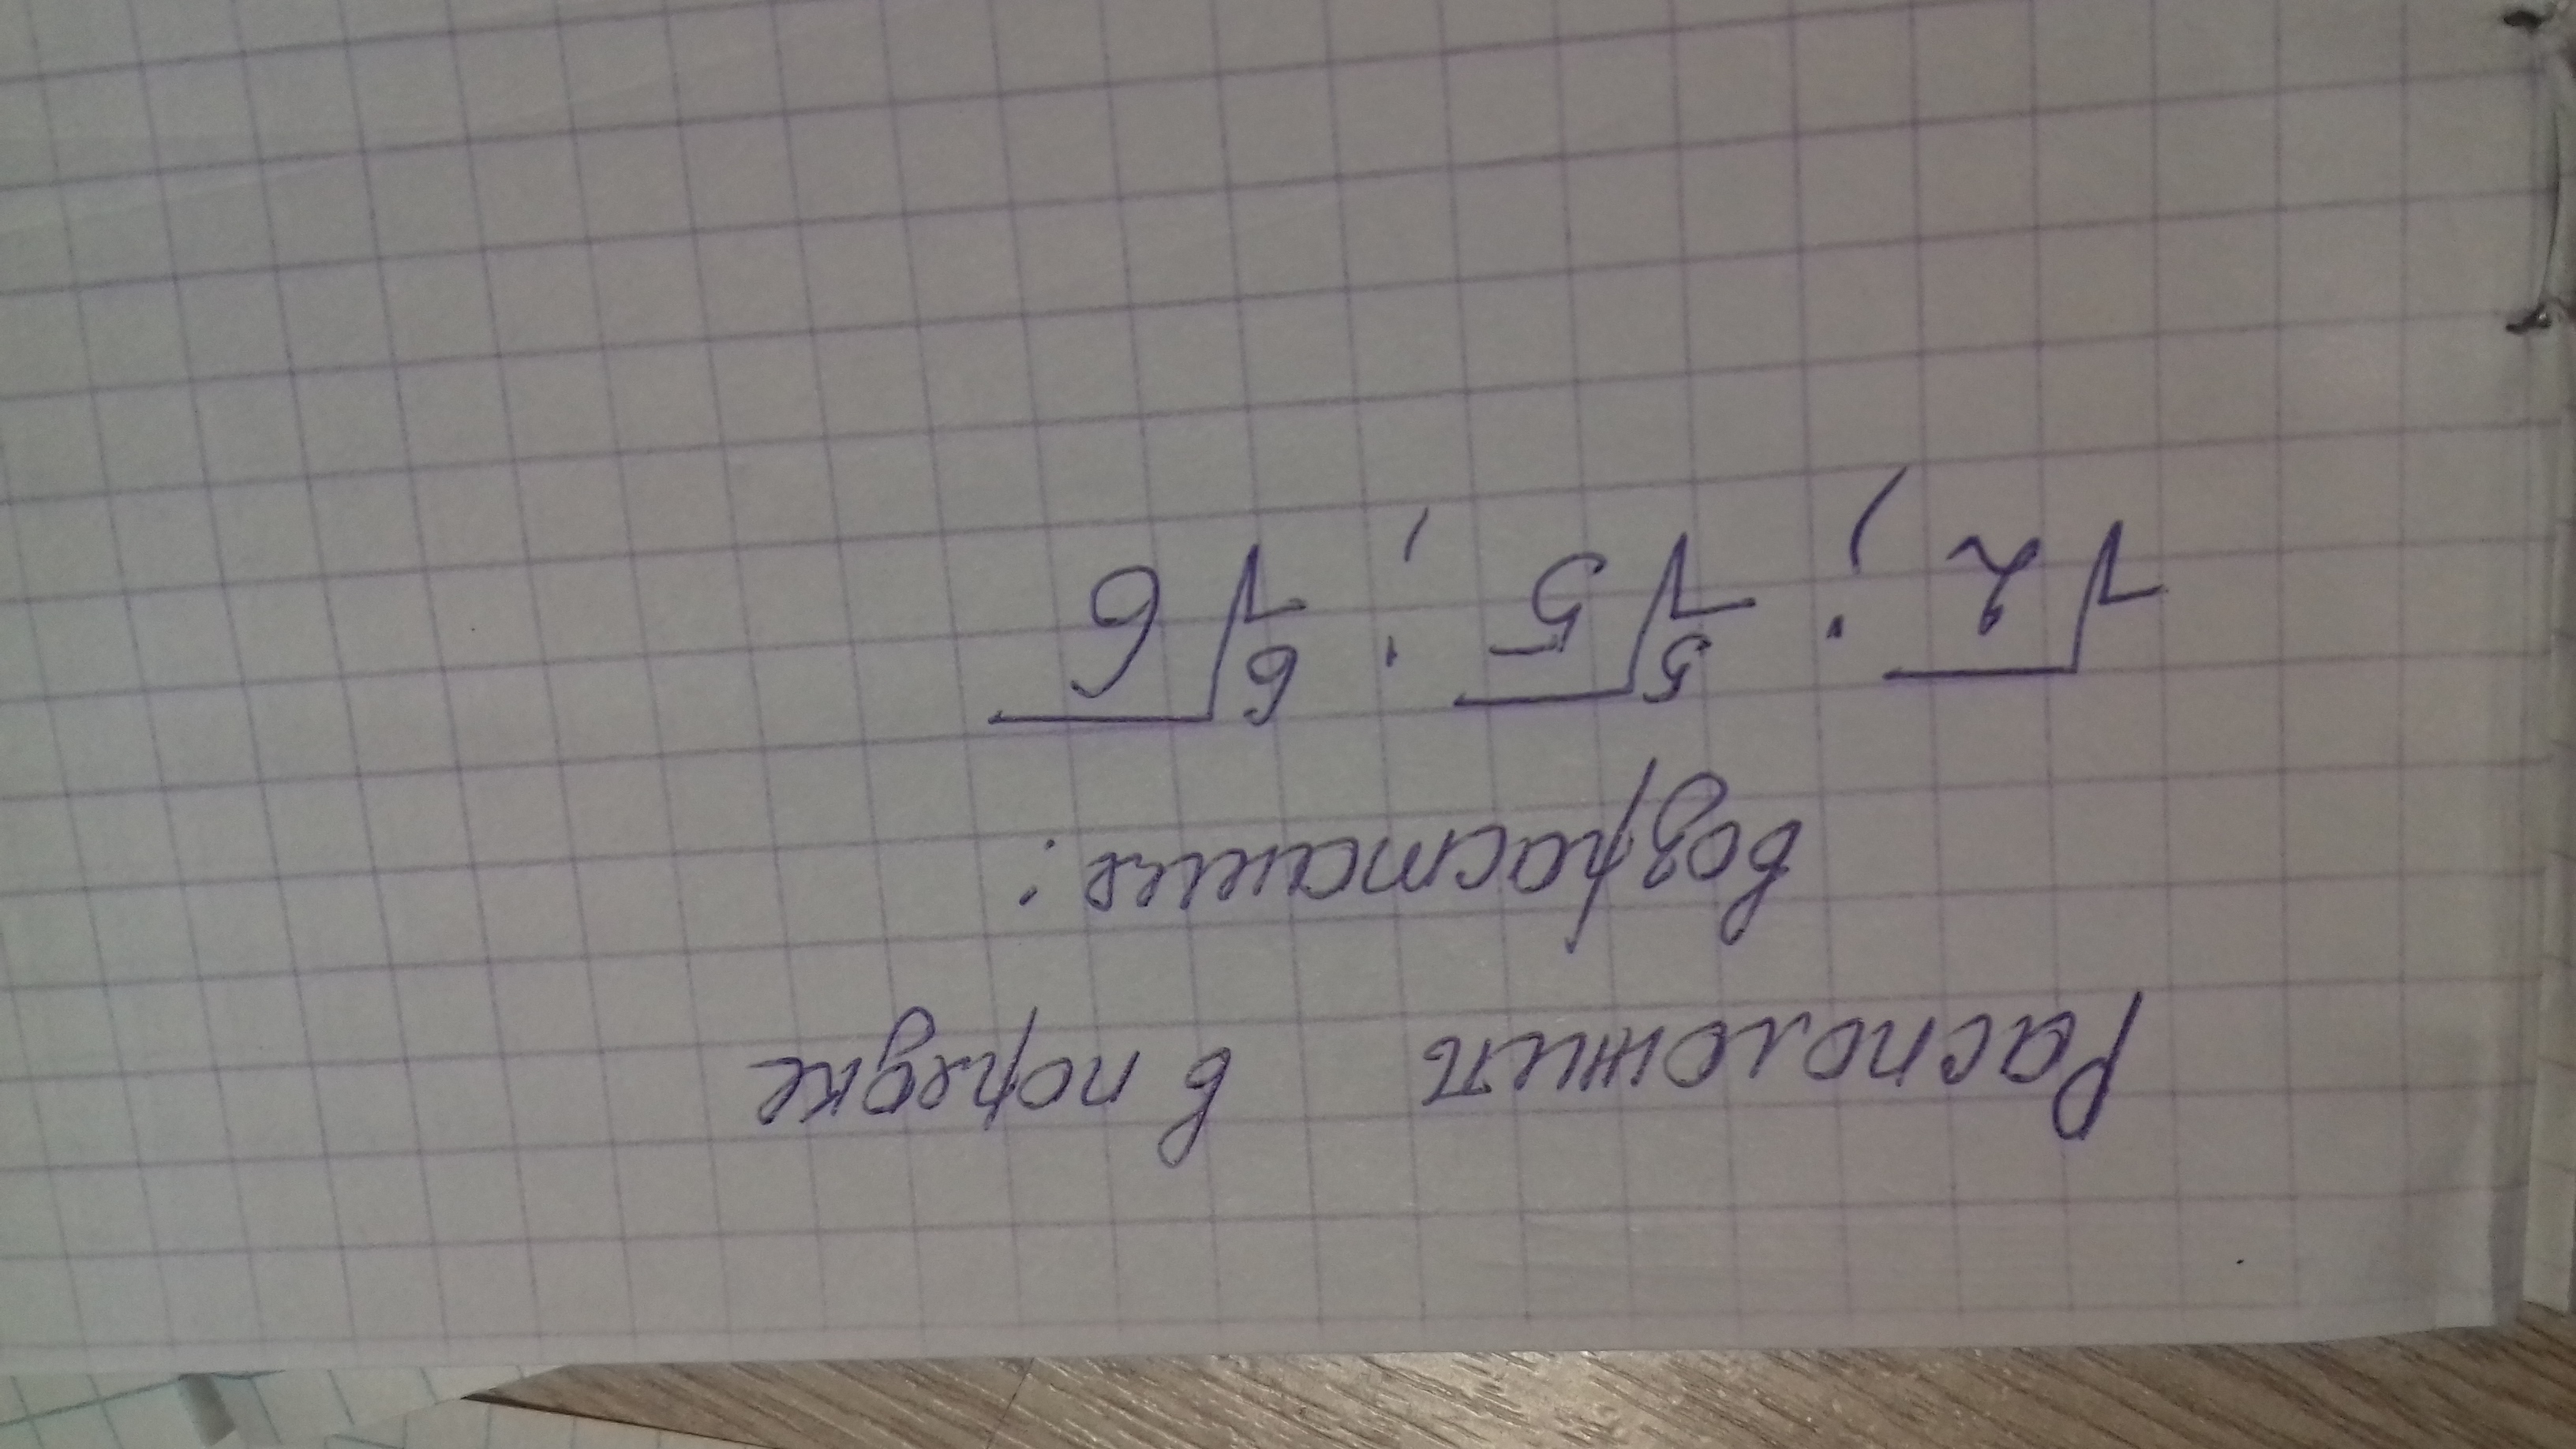 Расположить в порядке
возрастания:
√2; ⁵√5; ⁶√6